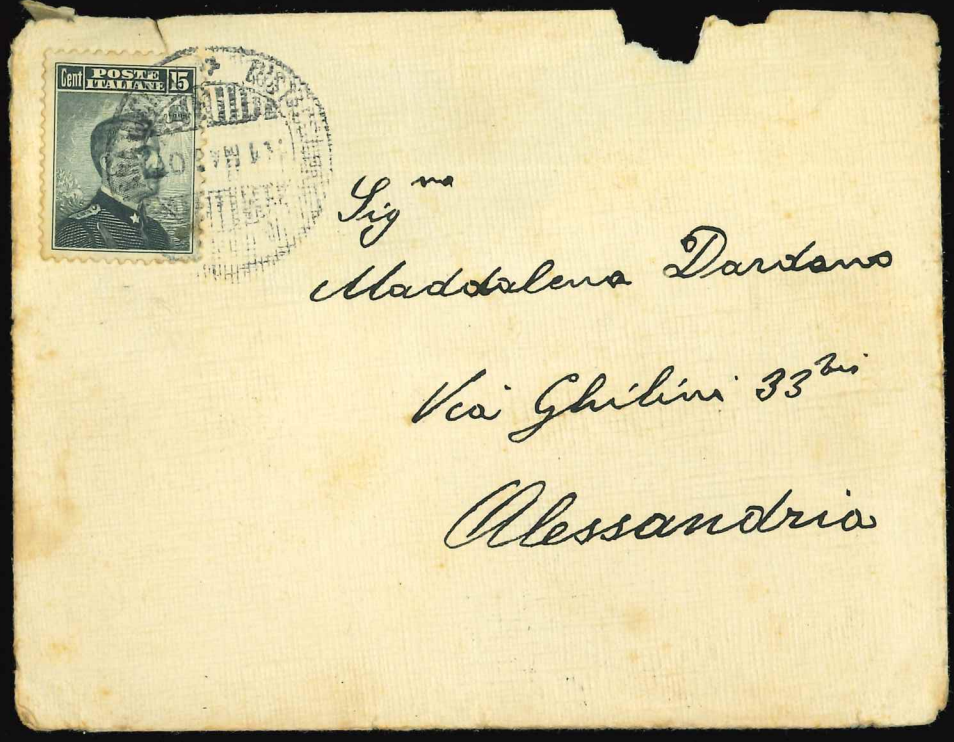 Cent POSTE 15
ITALIANE
Sig^na
Maddalena Dardano
Via Ghilini 33 bis
Alessandria